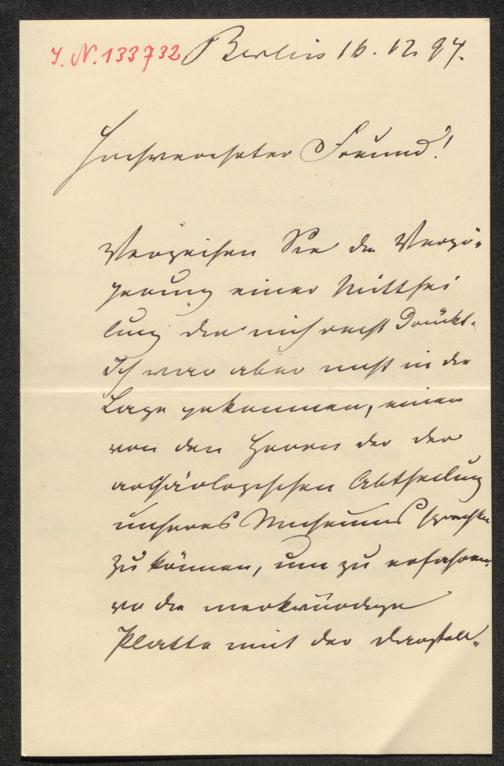 J. N. 133732 Berlin 16. 12. 94.
Hochverehrter Freund!
Verzeihen Sie die Verzö-
gerung einer Mitthei
lung die mich recht drückt.
Ich war aber nicht in der
Lage gekommen, einen
von den Herren der der
archäologischen Abtheilung
unseres Museums sprechen
zu können, um zu erfahren
wo die merkwürdige
Platte mit der Darstell-